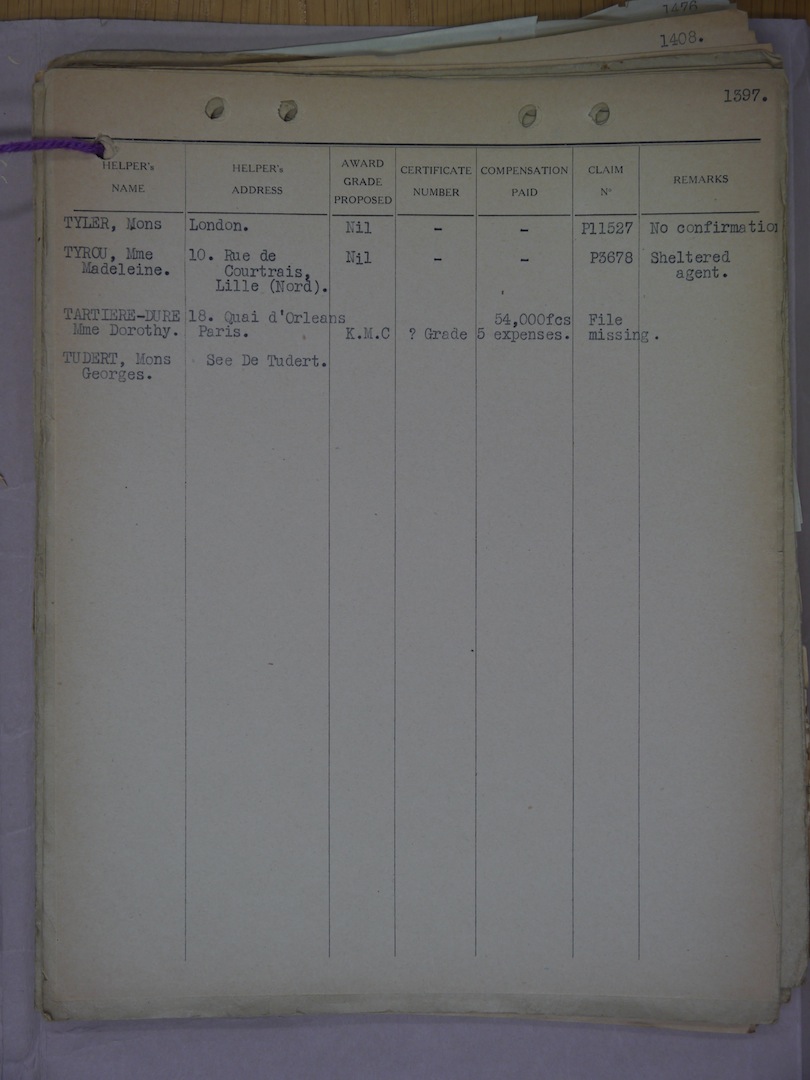 1476
1408.
1397.
HELPER's NAME HELPER's ADDRESS AWARD GRADE PROPOSED CERTIFICATE NUMBER COMPENSATION PAID CLAIM N° REMARKS
TYLER, Mons London. Nil - - P11527 No confirmation
TYROU, Mme 10. Rue de Nil - - P3678 Sheltered
Madeleine. Courtrais, agent.
Lille (Nord).
TARTIERE-DURE 18. Quai d'Orleans 54,000fcs File
Mme Dorothy. Paris. K.M.C ? Grade 5 expenses. missing.
TUDERT, Mons See De Tudert.
Georges.